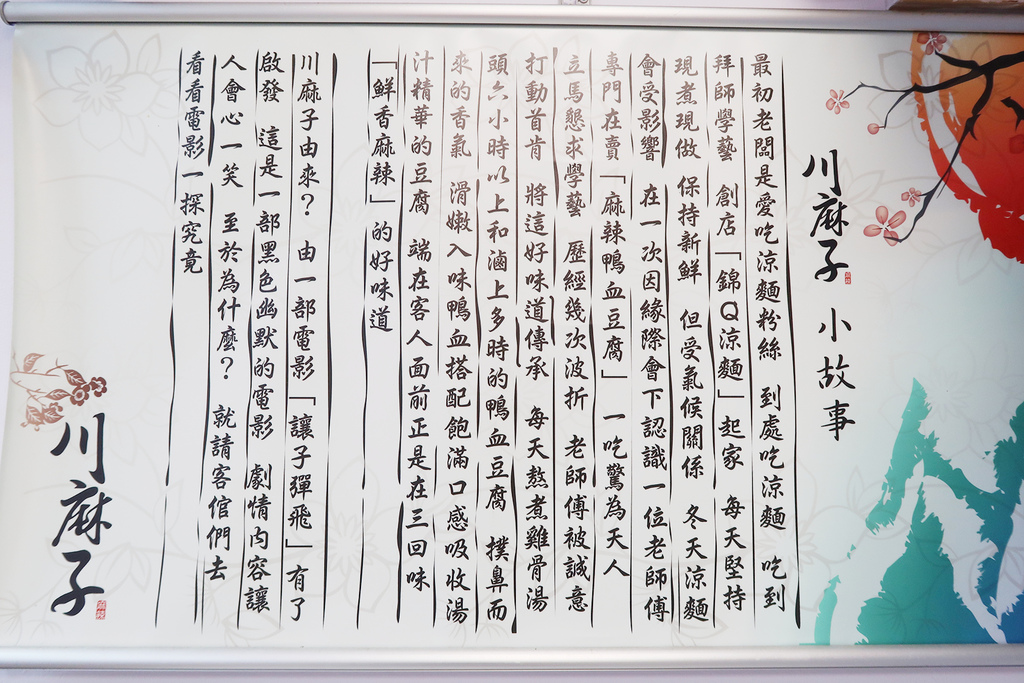 川麻子 小故事
最初老闆是愛吃涼麵粉絲 到處吃涼麵 吃到
拜師學藝 創店「錦Q涼麵」起家 每天堅持
現煮現做 保持新鮮 但受氣候關係 冬天涼麵
會受影響 在一次因緣際會下認識一位老師傅
專門在賣「麻辣鴨血豆腐」一吃驚為天人
立馬懇求學藝 歷經幾次波折 老師傅被誠意
打動首肯 將這好味道傳承 每天熬煮雞骨湯
頭六小時以上和滷上多時的鴨血豆腐 撲鼻而
來的香氣 滑嫩入味鴨血搭配飽滿口感吸收湯
汁精華的豆腐 端在客人面前正是在三回味
「鮮香麻辣」的好味道
川麻子由來？ 由一部電影「讓子彈飛」有了
啟發 這是一部黑色幽默的電影 劇情內容讓
人會心一笑 至於為什麼？ 就請客倌們去
看看電影一探究竟
川麻子